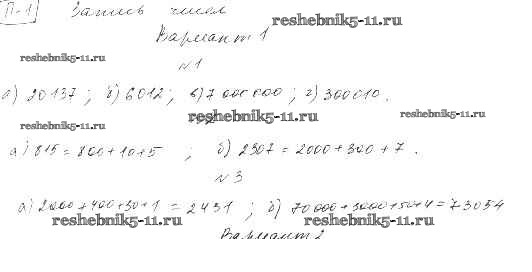 П-1 Запись чисел
reshebnik5-11.ru
Вариант 1
reshebnik5-11.ru
№1
а) 20137; б) 6012; в) 7 000 000; г) 300010.
reshebnik5-11.ru reshebnik5-11.ru
reshebnik5-11.ru
а) 815 = 800+10+5; б) 2307 = 2000+300+7.
№3
а) 2000+400+30+1 = 2431; б) 70000+3000+50+4=73054
reshebnik5-11.ru reshebnik5-11.ru
Вариант 2